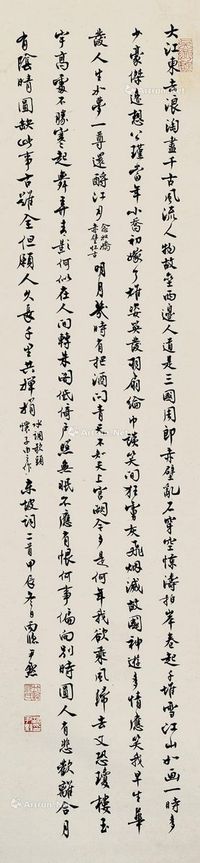 大江東去浪淘盡千古風流人物故壘西邊人道是三國周郎赤壁亂石穿空驚濤拍岸卷起千堆雪江山如畫一時多
少豪傑遙想公瑾當年小喬初嫁了雄姿英發羽扇綸巾談笑間狂虜灰飛烟滅故國神遊多情應笑我早生華
髮人生如夢一尊還酹江月
念奴嬌
赤壁懷古
明月幾時有把酒問青天不知天上宮闕今夕是何年我欲乘風歸去又恐瓊樓玉
宇高處不勝寒起舞弄清影何似在人間轉朱閣低綺戶照無眠不應有恨何事偏向別時圓人有悲歡離合月
有陰晴圓缺此事古難全但願人久長千里共嬋娟
水調歌頭
懷子由作
東坡詞二首甲辰冬日尹默